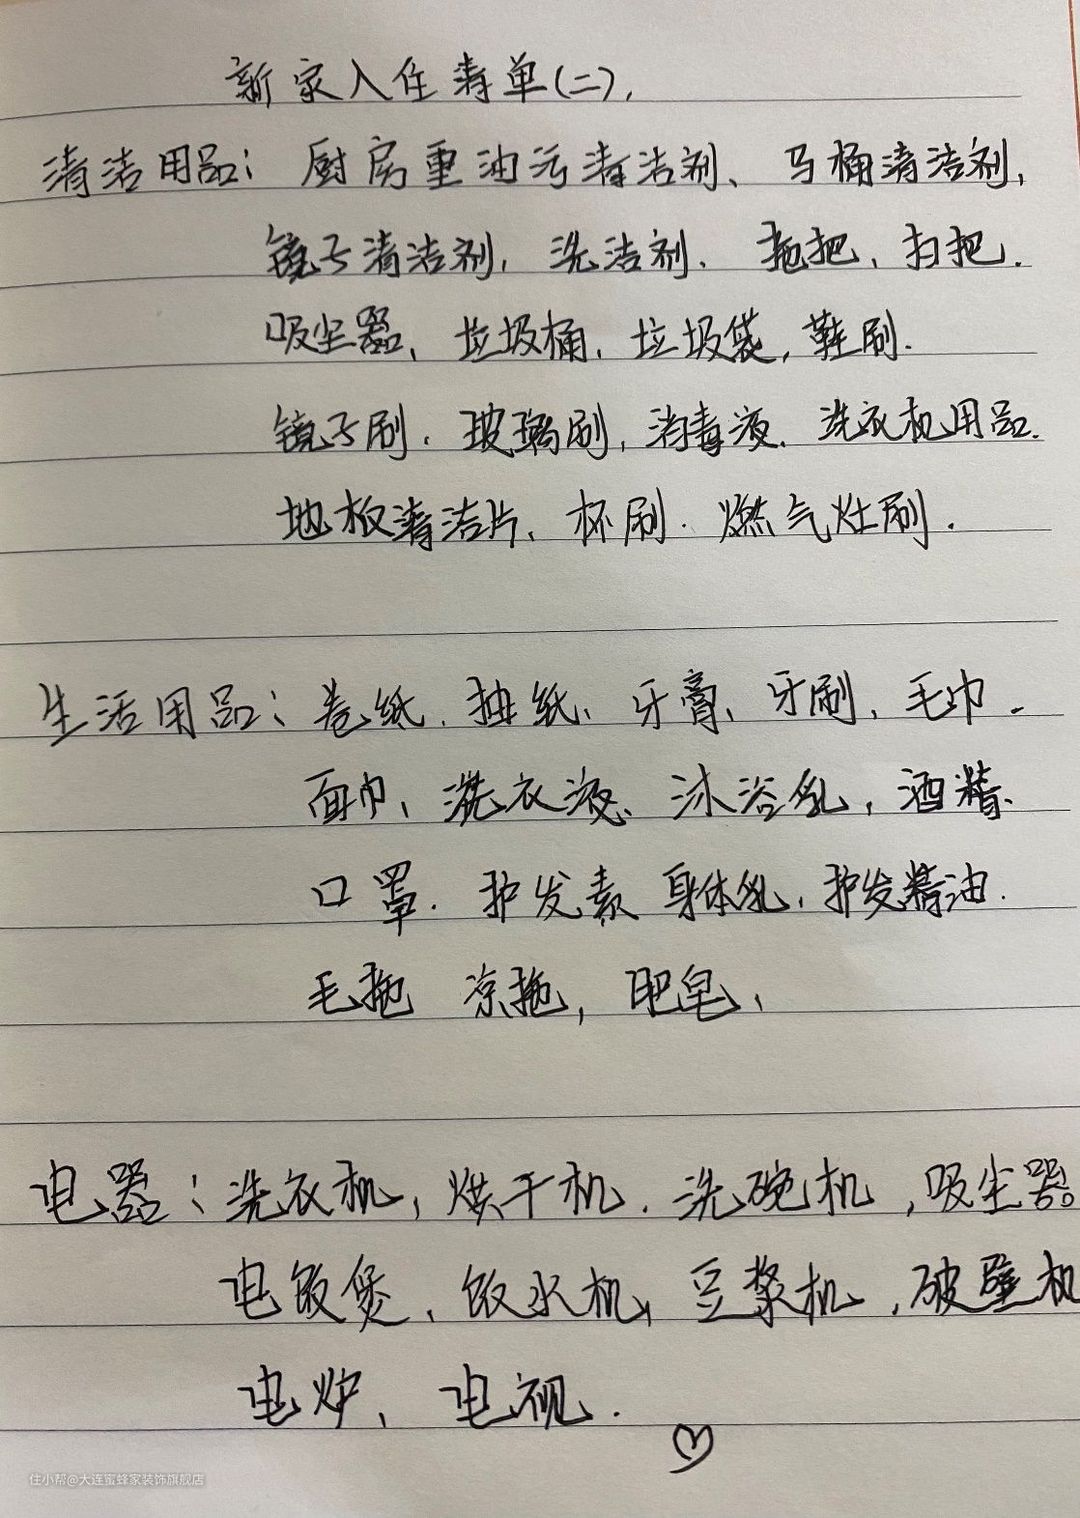 新家入住清单(二),
清洁用品: 厨房重油污清洁剂、马桶清洁剂,
镜子清洁剂, 洗洁剂. 拖把、扫把.
吸尘器, 垃圾桶, 垃圾袋, 鞋刷.
镜子刷. 玻璃刷, 消毒液. 洗衣机用品.
地板清洁片, 杯刷. 燃气灶刷.
生活用品: 卷纸. 抽纸、牙膏、牙刷, 毛巾.
面巾, 洗衣液、沐浴乳, 酒精.
口罩. 护发素 身体乳, 护发精油.
毛拖 凉拖, 肥皂,
电器: 洗衣机, 烘干机. 洗碗机, 吸尘器。
电饭煲, 饮水机, 豆浆机, 破壁机
电炉、电视.
住小帮@大连蜜蜂家装饰旗舰店